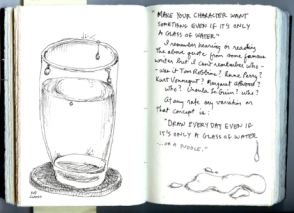 MAKE YOUR CHARACTER WANT
SOMETHING EVEN IF IT'S ONLY
A GLASS OF WATER"
I remember hearing or reading
the above quote from some famous
writer but I can't remember who -
- was it Tom Robbins? Anne Perry?
Kurt Vonnegut? Margaret Atwood?
Who? Ursula Le Guin? Who?
At any rate my variation on
that concept is:
"DRAW EVERYDAY EVEN IF
IT'S ONLY A GLASS OF WATER
...OR A PUDDLE."